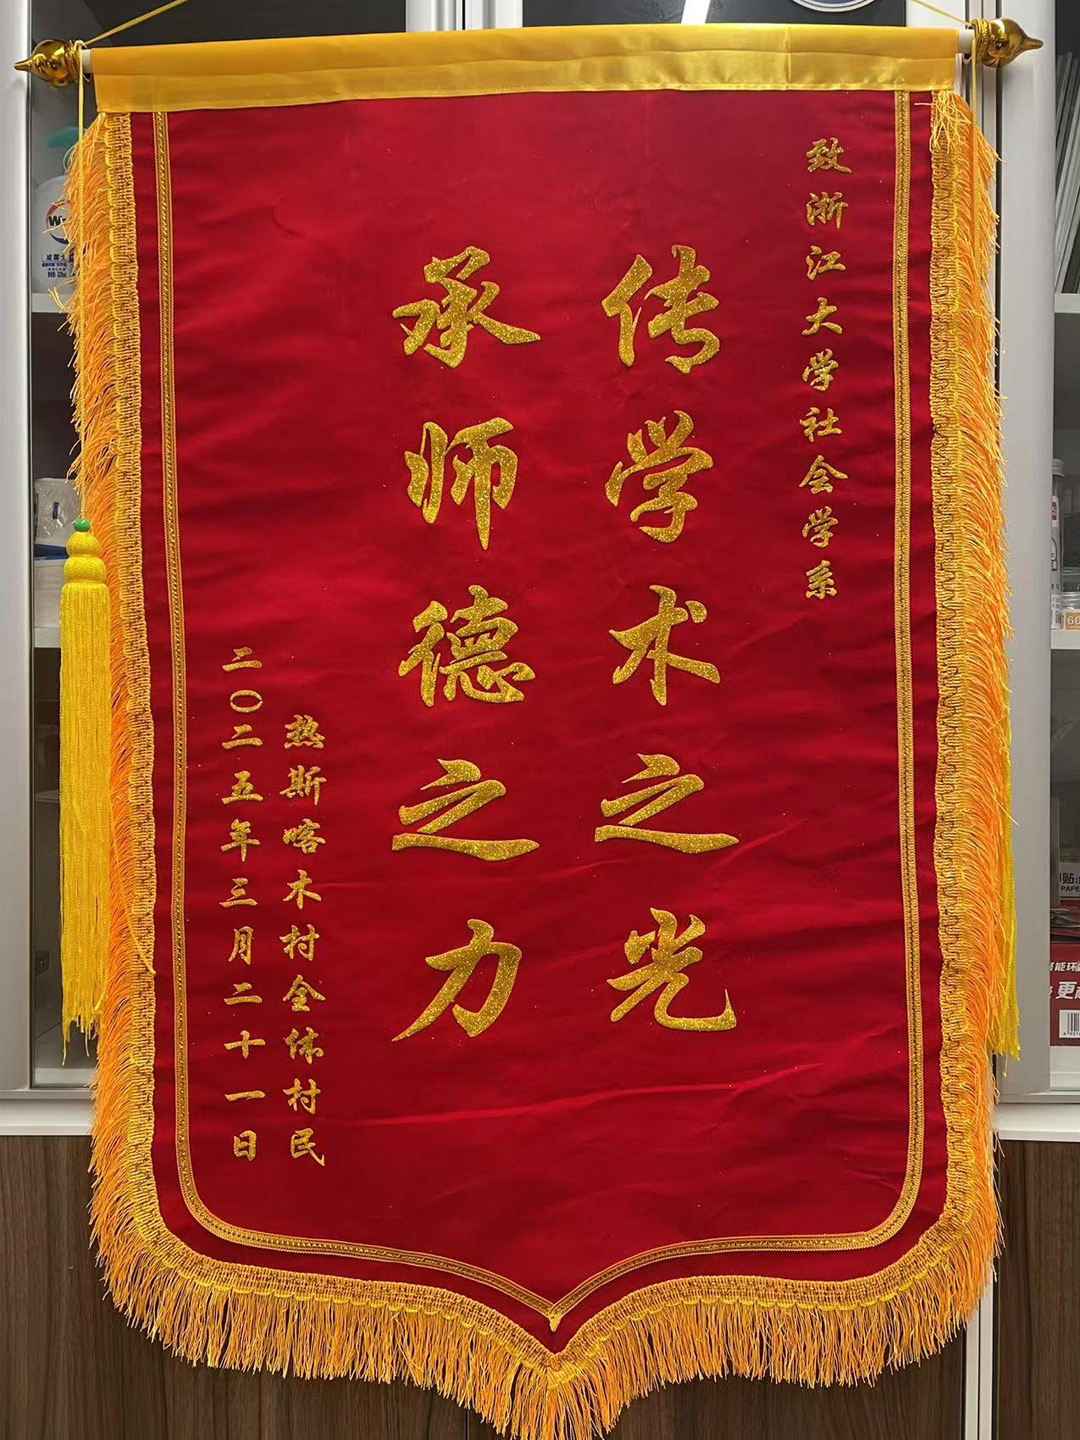 致浙江大学社会学系
传学术之光
承师德之力
热斯喀木村全体村民
二〇二五年三月二十一日